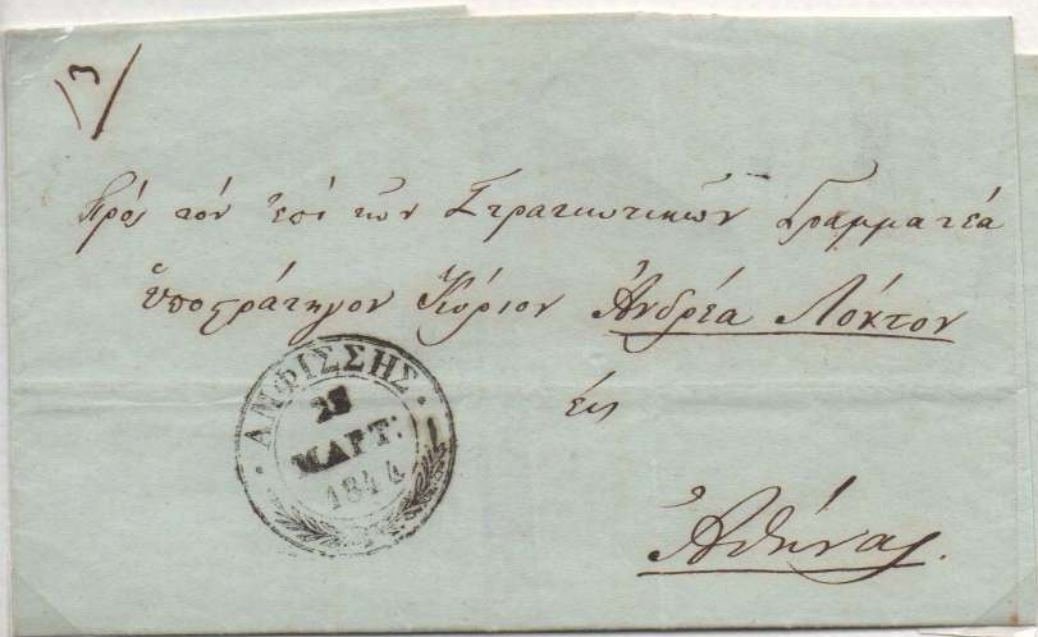 Πρός τόν ἐπί των Στρατιωτικών Γραμματέα
ὑποστράτηγον Κύριον Ἀνδρέα Λόντον
εἰς
Ἀθήνας.
ΑΜΦΙΣΣΗΣ
ΜΑΡΤ:
1844